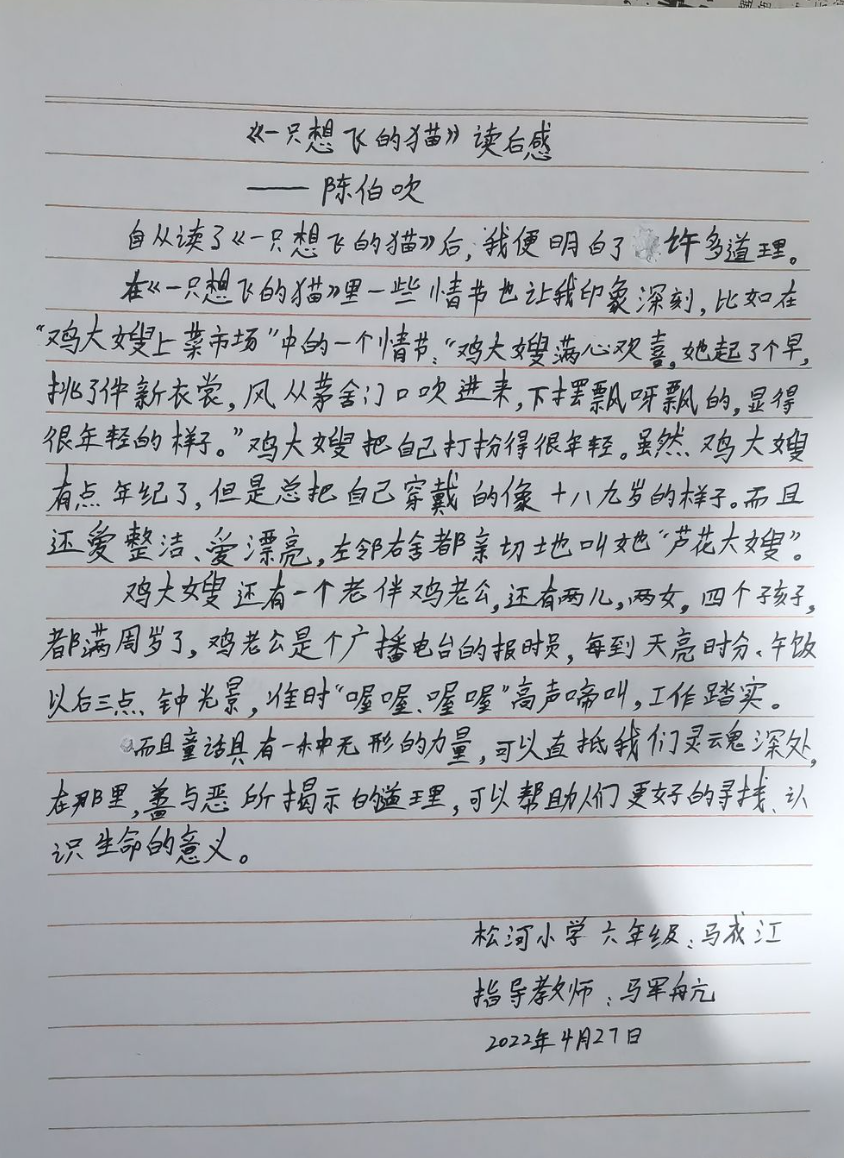 《一只想飞的猫》读后感
——陈伯吹
自从读了《一只想飞的猫》后,我便明白了许多道理。
在《一只想飞的猫》里一些情节也让我印象深刻,比如在
“鸡大嫂上菜市场”中的一个情节:“鸡大嫂满心欢喜,她起了个早,
挑了件新衣裳,风从茅舍门口吹进来,下摆飘呀飘的,显得
很年轻的样子。”鸡大嫂把自己打扮得很年轻。虽然鸡大嫂
有点年纪了,但是总把自己穿戴的像十八九岁的样子。而且
还爱整洁、爱漂亮,左邻右舍都亲切地叫她“芦花大嫂”。
鸡大嫂还有一个老伴鸡老公,还有两儿,两女,四个孩子,
都满周岁了,鸡老公是个广播电台的报时员,每到天亮时分、午饭
以后三点钟光景,准时“喔喔、喔喔”高声啼叫,工作踏实。
而且童话具有一种无形的力量,可以直抵我们灵魂深处,
在那里,善与恶所揭示的道理,可以帮助人们更好的寻找、认
识生命的意义。
松河小学六年级:马成江
指导教师:马军舟亢
2022年4月27日